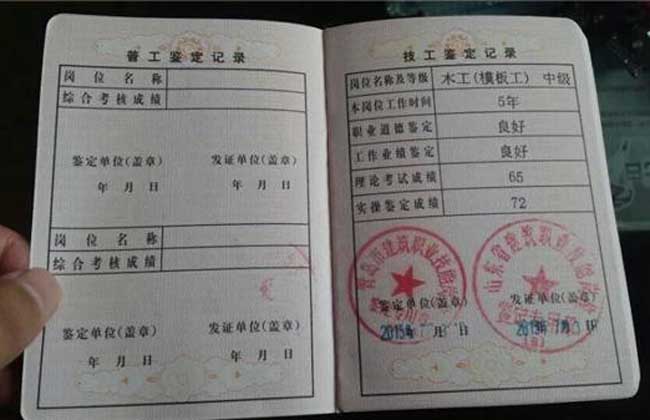 普工鉴定记录
岗位名称
综合考核成绩
鉴定单位(盖章) 发证单位(盖章)
年 月 日 年 月 日
岗位名称
综合考核成绩
鉴定单位(盖章) 发证单位(盖章)
年 月 日 年 月 日
技工鉴定记录
岗位名称及等级 木工(模板工) 中级
本岗位工作时间 5年
职业道德鉴定 良好
工作业绩鉴定 良好
理论考试成绩 65
实操鉴定成绩 72
青岛市建筑职业技能
山东省建筑职业技能
鉴定单位(盖章) 发证单位(盖章)
2015年 月 日 年 月 日